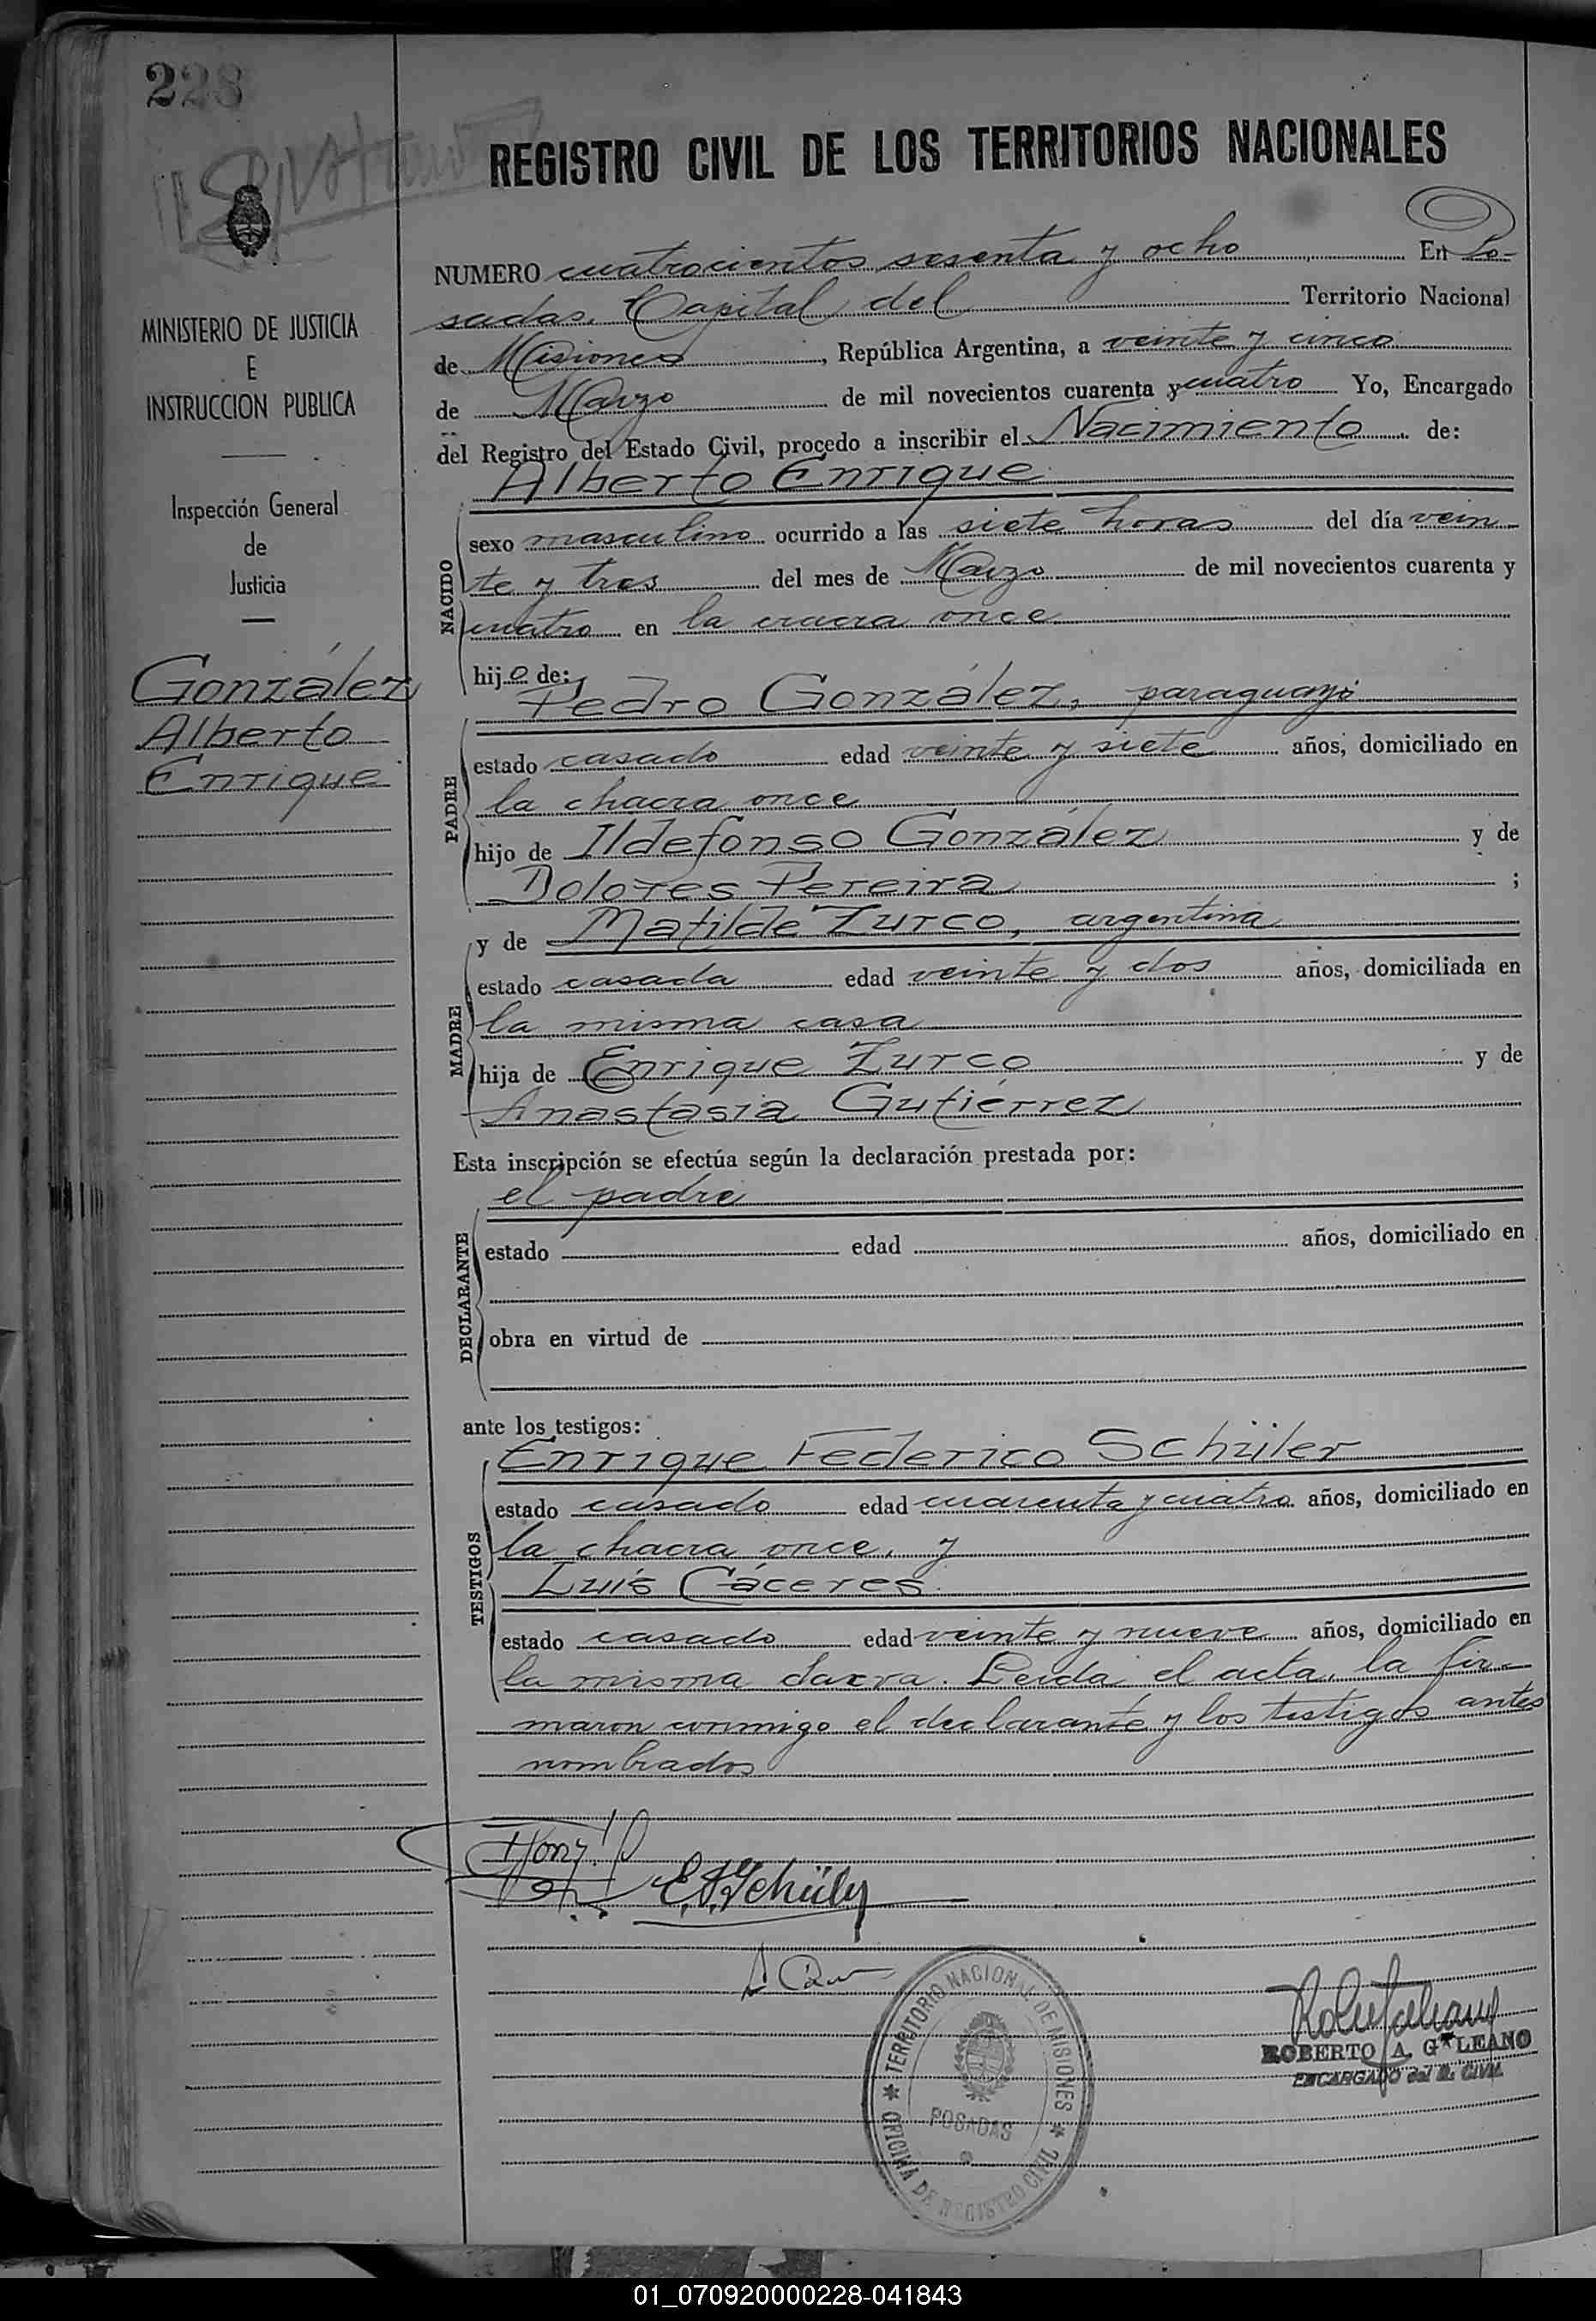 228
REGISTRO CIVIL DE LOS TERRITORIOS NACIONALES
MINISTERIO DE JUSTICIA
E
INSTRUCCION PUBLICA
Inspección General
de
Justicia
González
Alberto
Enrique
NUMERO cuatrocientos sesenta y ocho En Po-
sadas, Capital del Territorio Nacional
de Misiones, República Argentina, a veinte y cinco
de Marzo de mil novecientos cuarenta y cuatro Yo, Encargado
del Registro del Estado Civil, procedo a inscribir el Nacimiento de:
Alberto Enrique
NACIDO
sexo masculino ocurrido a las siete horas del día vein-
te y tres del mes de Marzo de mil novecientos cuarenta y
cuatro en la cracra once
hijo de:
Pedro González, paraguayo
PADRE
estado casado edad veinte y siete años, domiciliado en
la chacra once
hijo de Ildefonso González y de
Dolores Pereira ;
y de Matilde Zurco, argentina
MADRE
estado casada edad veinte y dos años, domiciliada en
la misma casa
hija de Enrique Zurco y de
Anastasia Gutiérrez
Esta inscripción se efectúa según la declaración prestada por:
el padre
DECLARANTE
estado edad años, domiciliado en
obra en virtud de
ante los testigos:
Enrique Federico Schüler
TESTIGOS
estado casado edad cuarenta y cuatro años, domiciliado en
la chacra once, y
Luis Cáceres
estado casado edad veinte y nueve años, domiciliado en
la misma Leida el acta, la fir-
maron conmigo el declarante y los testigos antes
nombrados
TERRITORIO NACIONAL DE MISIONES
POSADAS
OFICINA DE REGISTRO CIVIL
ROBERTO A. GALEANO
ENCARGADO del R. CIVIL
01_070920000228-041843